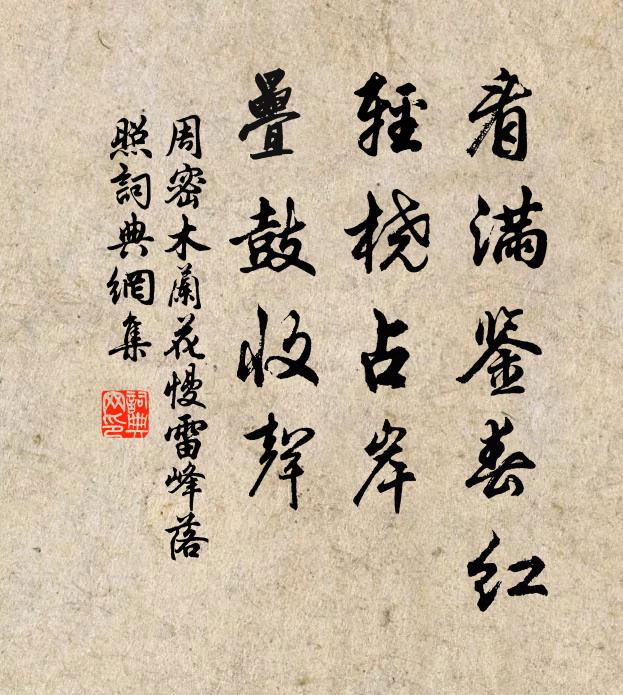 看满鉴春红
轻桡占岸
叠鼓收声
周密木兰花慢雷峰落
照词典网集
词典网印